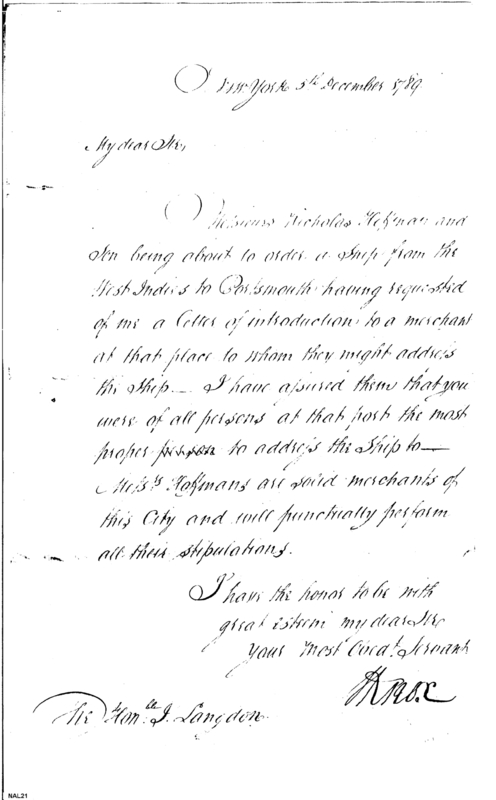 New York 5th December 1789
My dear Sir,
Messieurs Nicholas Hoffman and
Son being about to order a Ship from the
West Indies to Portsmouth having requested
of me a letter of introduction to a merchant
at that place to whom they might address
the Ship — I have assured them that you
were of all persons at that port the most
proper person to address the Ship to —
Messrs Hoffmans are solid merchants of
this City and will punctually perform
all their stipulations.
I have the honor to be with
great esteem my dear Sir
Your Most Obedt. Servant
HKnox
The Honble J. Langdon
NAL21